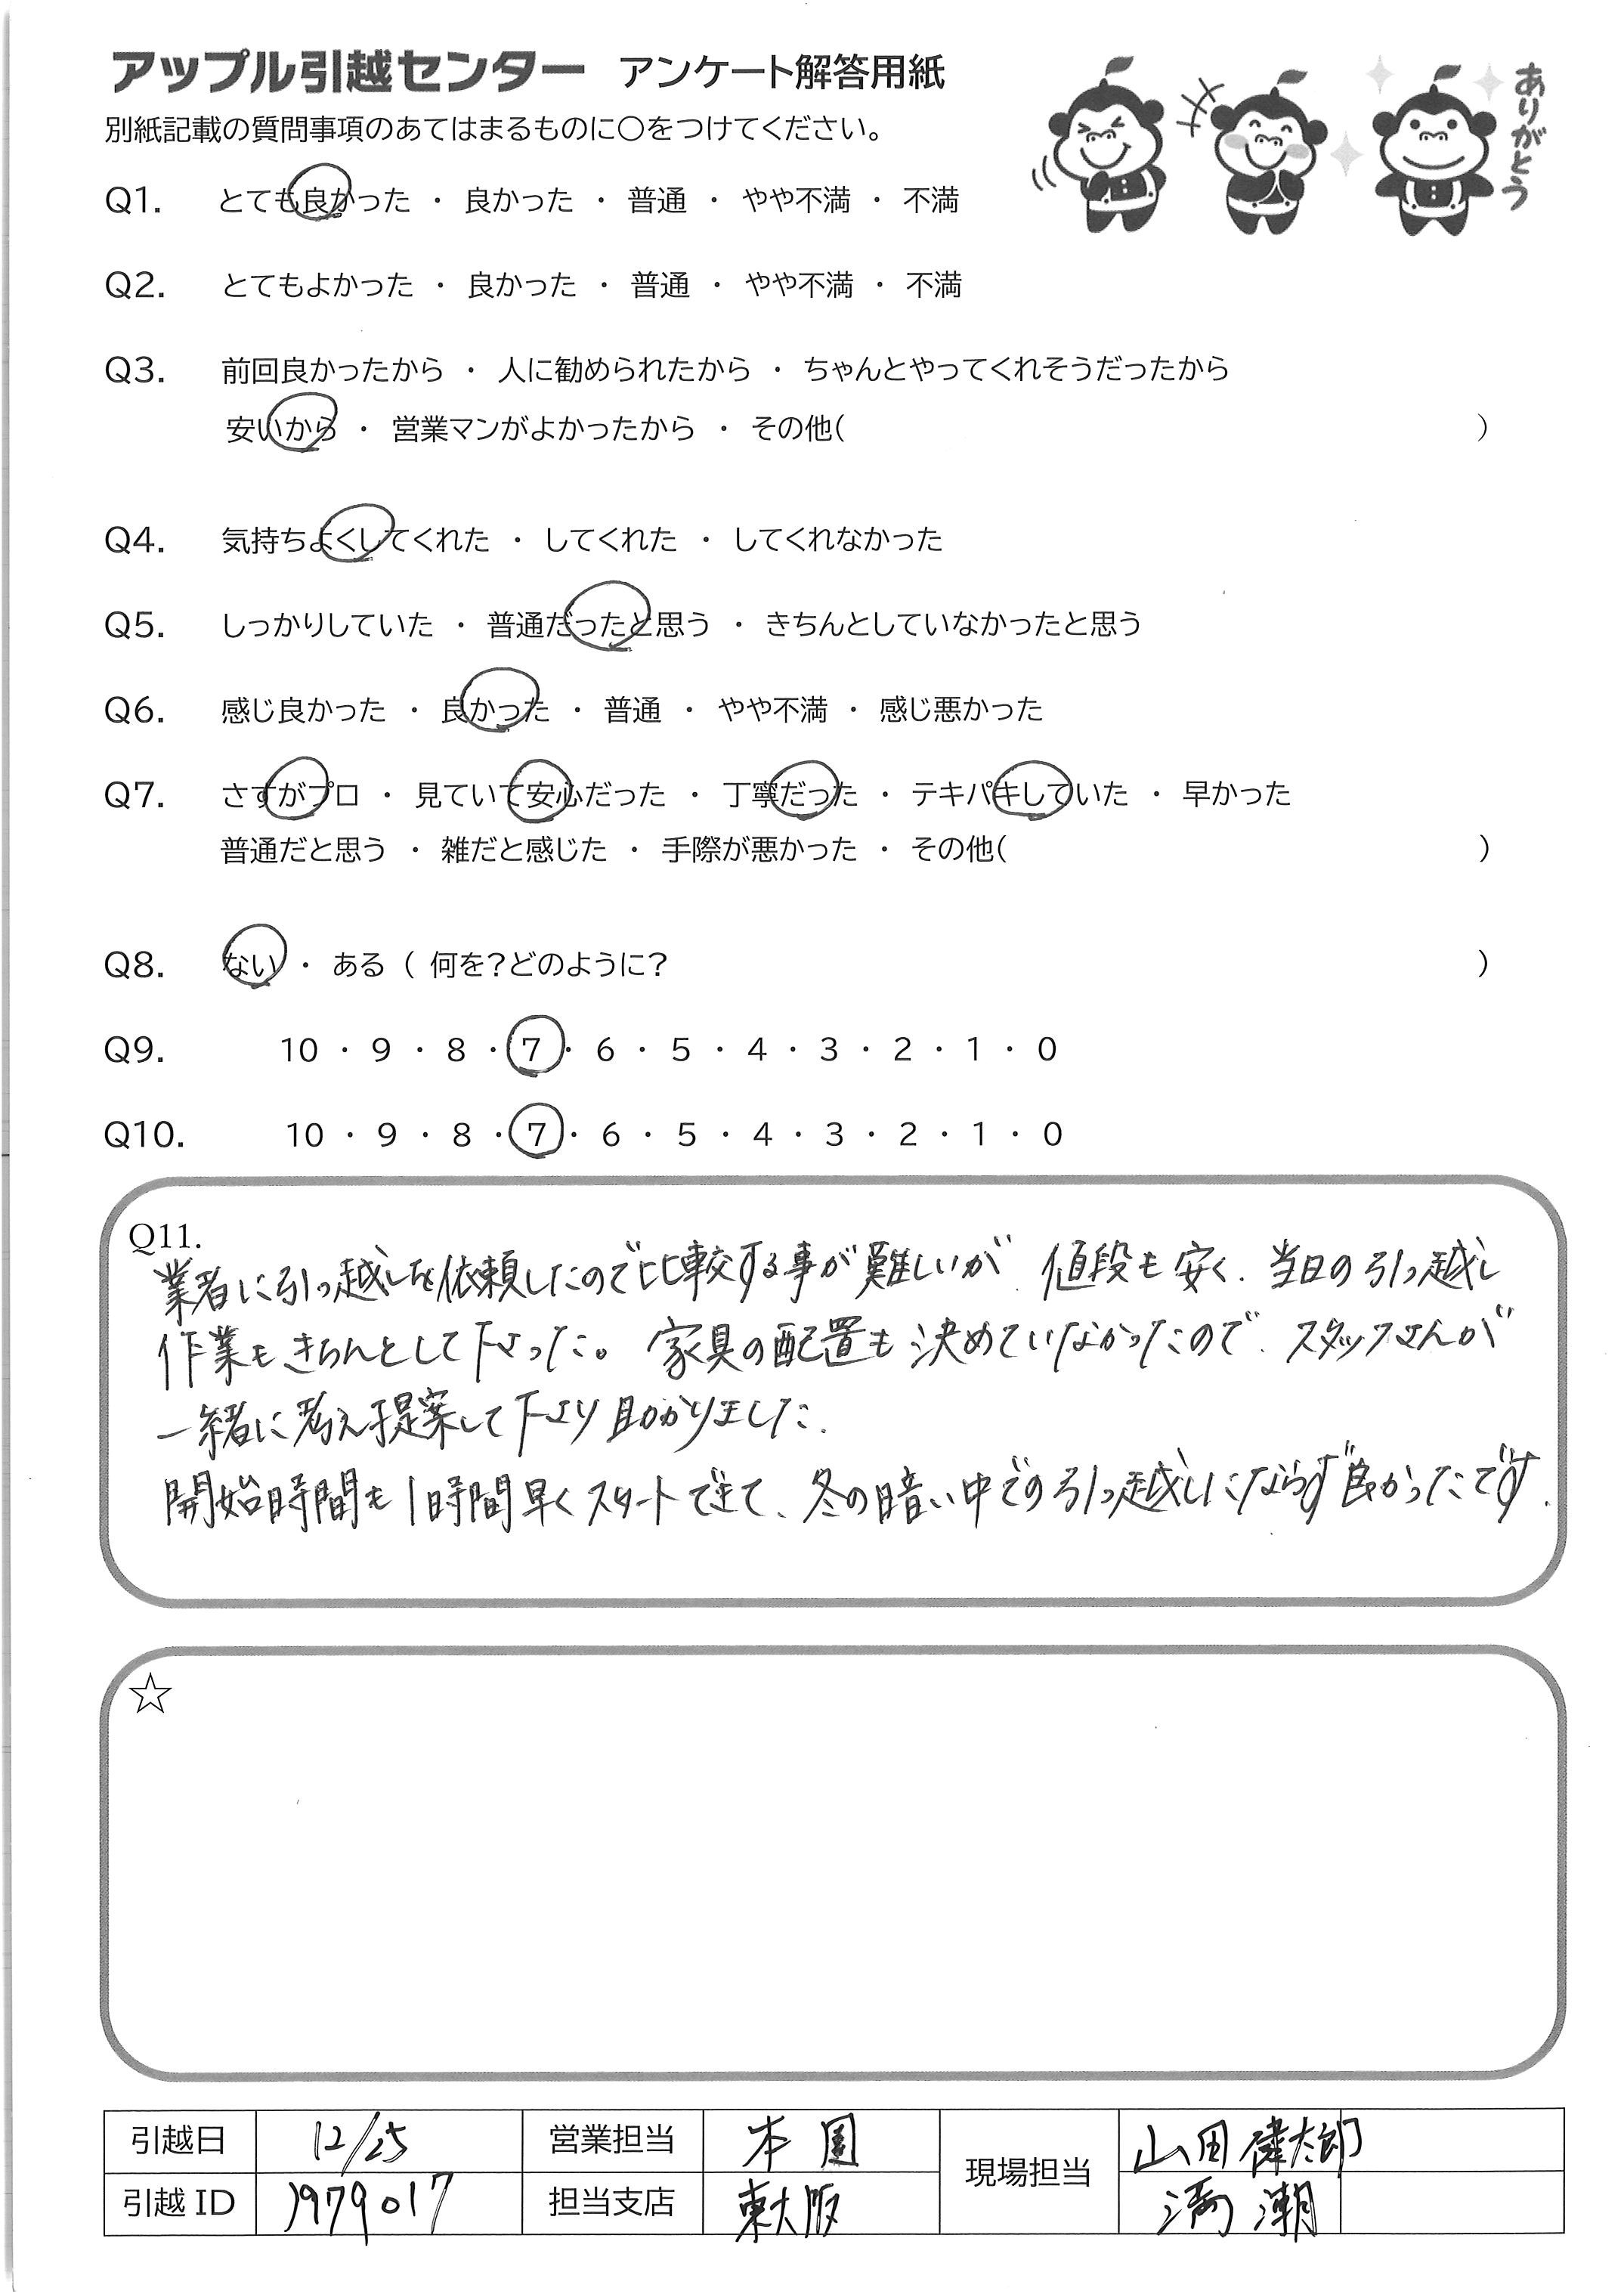 アップル引越センター アンケート解答用紙
ありがとう
別紙記載の質問事項のあてはまるものに○をつけてください。
Q1. とても良かった ・ 良かった ・ 普通 ・ やや不満 ・ 不満
Q2. とてもよかった ・ 良かった ・ 普通 ・ やや不満 ・ 不満
Q3. 前回良かったから ・ 人に勧められたから ・ ちゃんとやってくれそうだったから
安いから ・ 営業マンがよかったから ・ その他( )
Q4. 気持ちよくしてくれた ・ してくれた ・ してくれなかった
Q5. しっかりしていた ・ 普通だったと思う ・ きちんとしていなかったと思う
Q6. 感じ良かった ・ 良かった ・ 普通 ・ やや不満 ・ 感じ悪かった
Q7. さすがプロ ・ 見ていて安心だった ・ 丁寧だった ・ テキパキしていた ・ 早かった
普通だと思う ・ 雑だと感じた ・ 手際が悪かった ・ その他( )
Q8. ない ・ ある ( 何を?どのように? )
Q9. 10 ・ 9 ・ 8 ・ 7 ・ 6 ・ 5 ・ 4 ・ 3 ・ 2 ・ 1 ・ 0
Q10. 10 ・ 9 ・ 8 ・ 7 ・ 6 ・ 5 ・ 4 ・ 3 ・ 2 ・ 1 ・ 0
Q11.
業者に引っ越しを依頼したので比較する事が難しいが 値段も安く、当日の引っ越し
作業もきちんとして下さった。家具の配置も決めていなかったので、スタッフさんが
一緒に考え提案して下さり助かりました.
開始時間も1時間早くスタートできて、冬の暗い中での引っ越しにならず良かったです.
☆
引越日 12/25 営業担当 本園 現場担当 山田健太郎
引越ID 1979017 担当支店 東大阪 潮